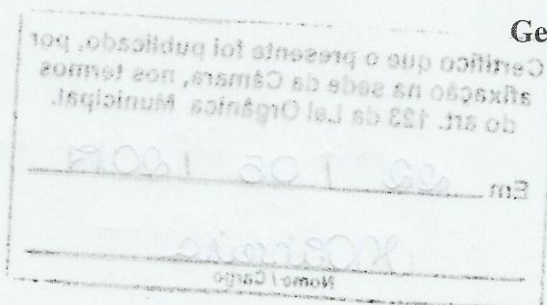 Ge
Certifico que o presente foi publicado, por
afixação na sede da Câmara, nos termos
do art. 123 da Lei Orgânica Municipal.
Em 22 / 05 / 201
Nome / Cargo